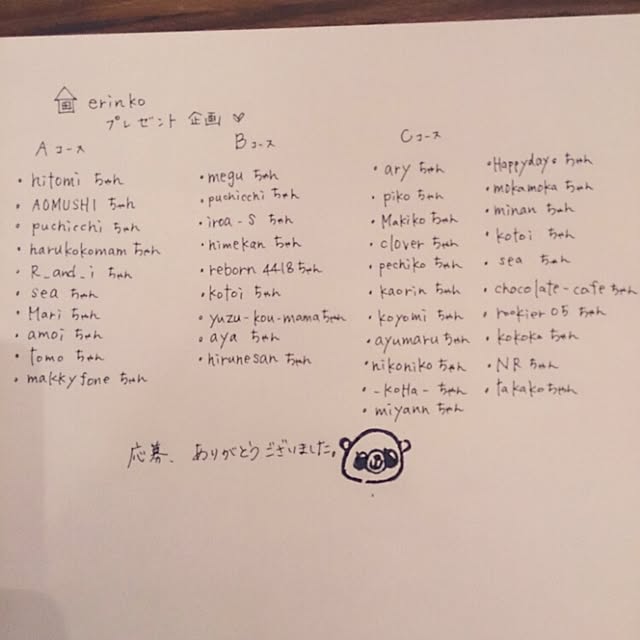 erinko
プレゼント 企画
Aコース
・hitomi ちゃん
・AOMUSHI ちゃん
・puchicchi ちゃん
・harukokomam ちゃん
・R_and_i ちゃん
・sea ちゃん
・Mari ちゃん
・amoi ちゃん
・tomo ちゃん
・makkyfone ちゃん
Bコース
・megu ちゃん
・puchicchi ちゃん
・iroa-s ちゃん
・himekan ちゃん
・reborn 4418 ちゃん
・kotoi ちゃん
・yuzu-kou-mamaちゃん
・aya ちゃん
・hirunesan ちゃん
Cコース
・ary ちゃん
・piko ちゃん
・Makiko ちゃん
・clover ちゃん
・pechiko ちゃん
・kaorin ちゃん
・koyomi ちゃん
・ayumaru ちゃん
・nikoniko ちゃん
・-koHa- ちゃん
・miyann ちゃん
・Happyday。ちゃん
・mokamoka ちゃん
・minan ちゃん
・kotoi ちゃん
・sea ちゃん
・chocolate-cafe ちゃん
・rookier05 ちゃん
・kokoko ちゃん
・NR ちゃん
・takako ちゃん
応募、ありがとうございました。